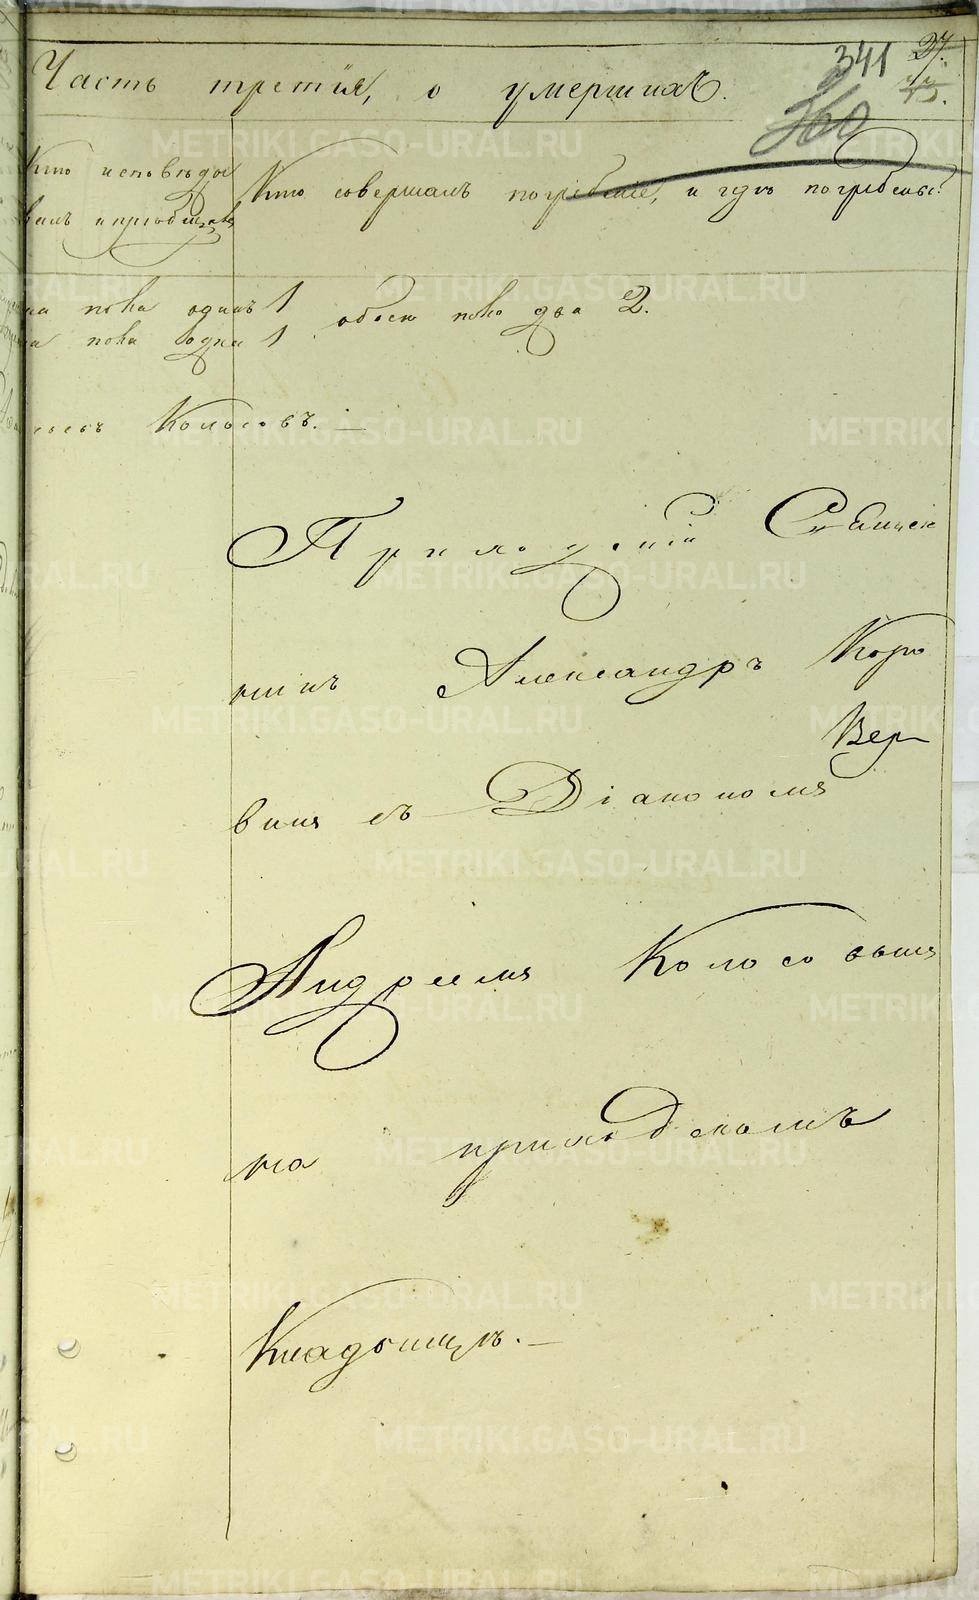 341 27.
Часть третія, о умершихъ. 45.
360
Кто исповѣды
валъ и пріобщалъ
Кто совершалъ погребеніе, и гдѣ погребены.
пола одинъ 1 обоего пола два 2.
пола одна 1
Колосовъ. —
Приходскій Священ
никъ Александръ Коро
Вер
винъ съ Діакономъ
Андреемъ Колосовымъ
на приходскомъ
Кладбищѣ. —
METRIKI.GASO-URAL.RU